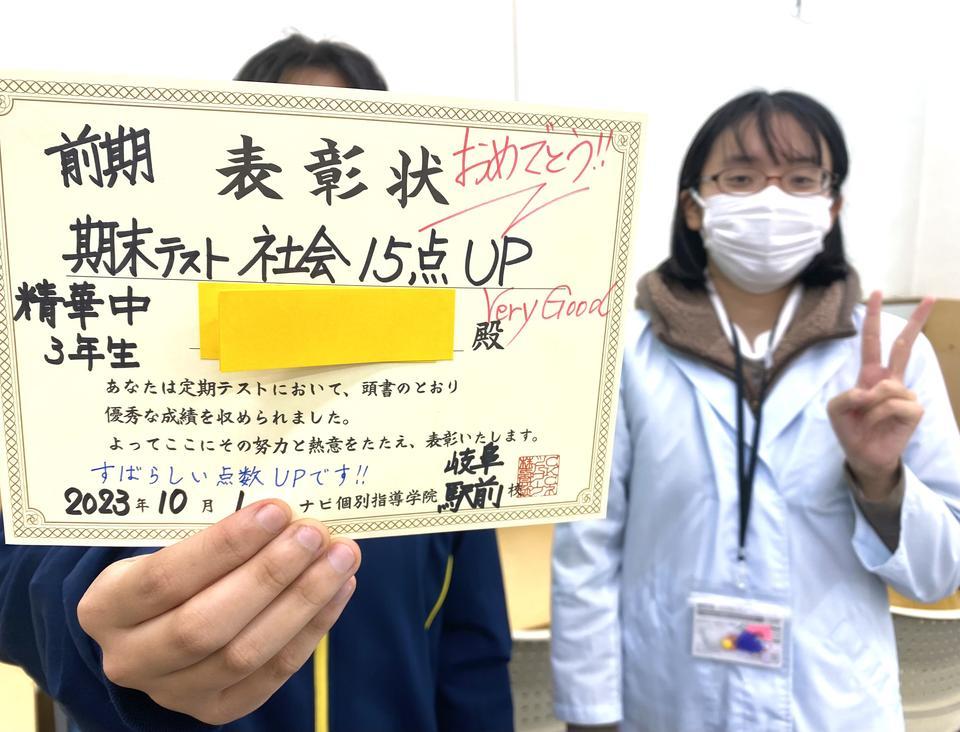 前期 表彰状 おめでとう!!
期末テスト 社会 15点 UP
精華中
3年生
殿
Very Good
あなたは定期テストにおいて、頭書のとおり
優秀な成績を収められました。
よってここにその努力と熱意をたたえ、表彰いたします。
すばらしい点数UPです!!
2023年10月1
ナビ個別指導学院 岐阜駅前校